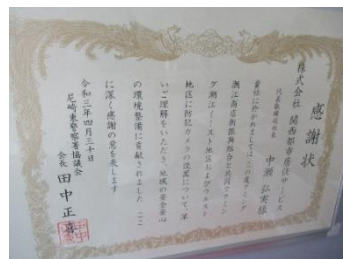 感謝状
株式会社 関西都市居住サービス
代表取締役社長
中瀬弘実様
貴社におかれましては この度 グランド
潮江商店街振興組合と共同でアミン
グ潮江イースト地区およびウエスト
地区に防犯カメラの設置について、深
いご理解をいただき、地域の安全安心
の環境整備に貢献されました ここ
に深く感謝の意を表します
令和三年四月三十日
尼崎東警察署協議会
会長 田中正喜